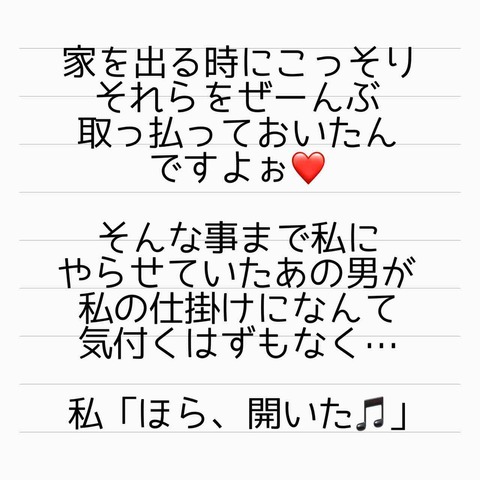 家を出る時にこっそり
それらをぜーんぶ
取っ払っておいたん
ですよぉ❤️
そんな事まで私に
やらせていたあの男が
私の仕掛けになんて
気付くはずもなく…
私「ほら、開いた🎵」